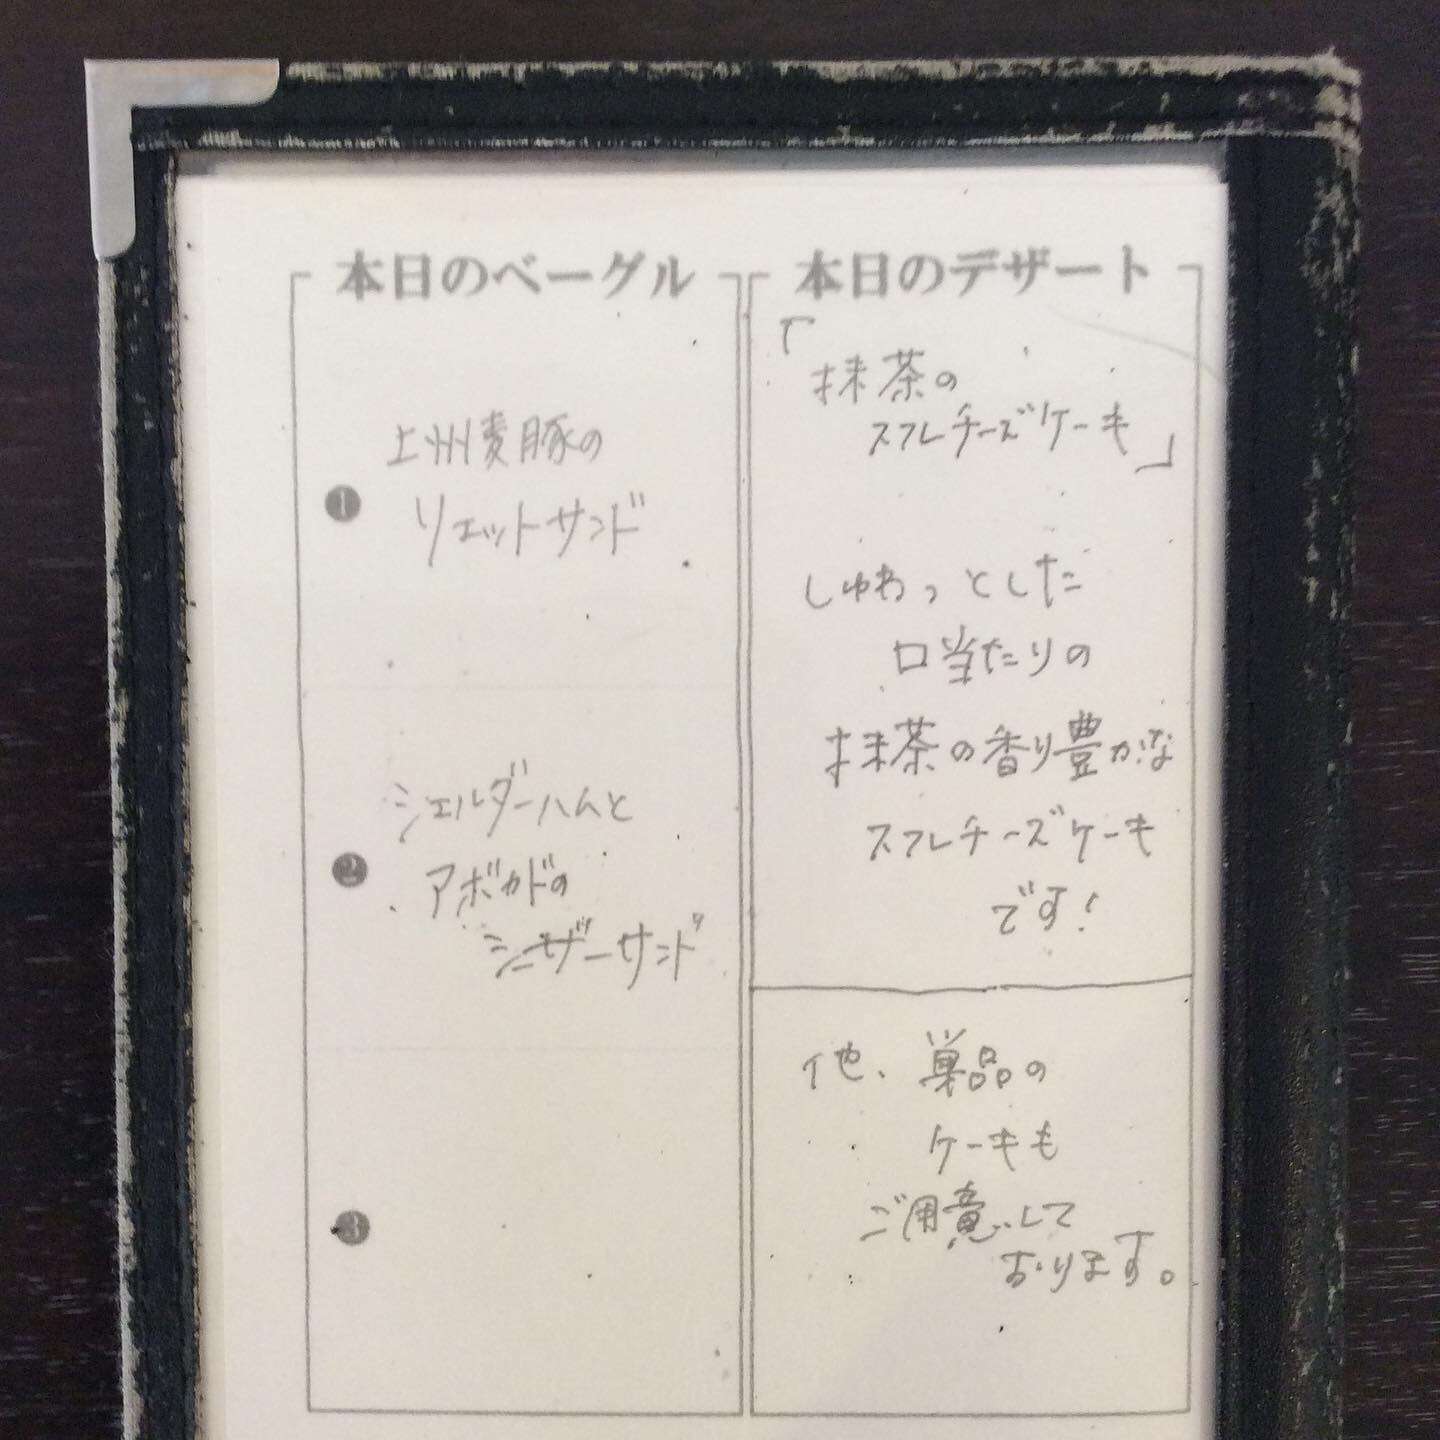 本日のベーグル
❶
上州麦豚の
リエットサンド
❷
ショルダーハムと
アボカドの
シーザーサンド
❸
本日のデザート
「抹茶の
スフレチーズケーキ」
しゅわっとした
口当たりの
抹茶の香り豊かな
スフレチーズケーキ
です!
他、単品の
ケーキも
ご用意して
おります。